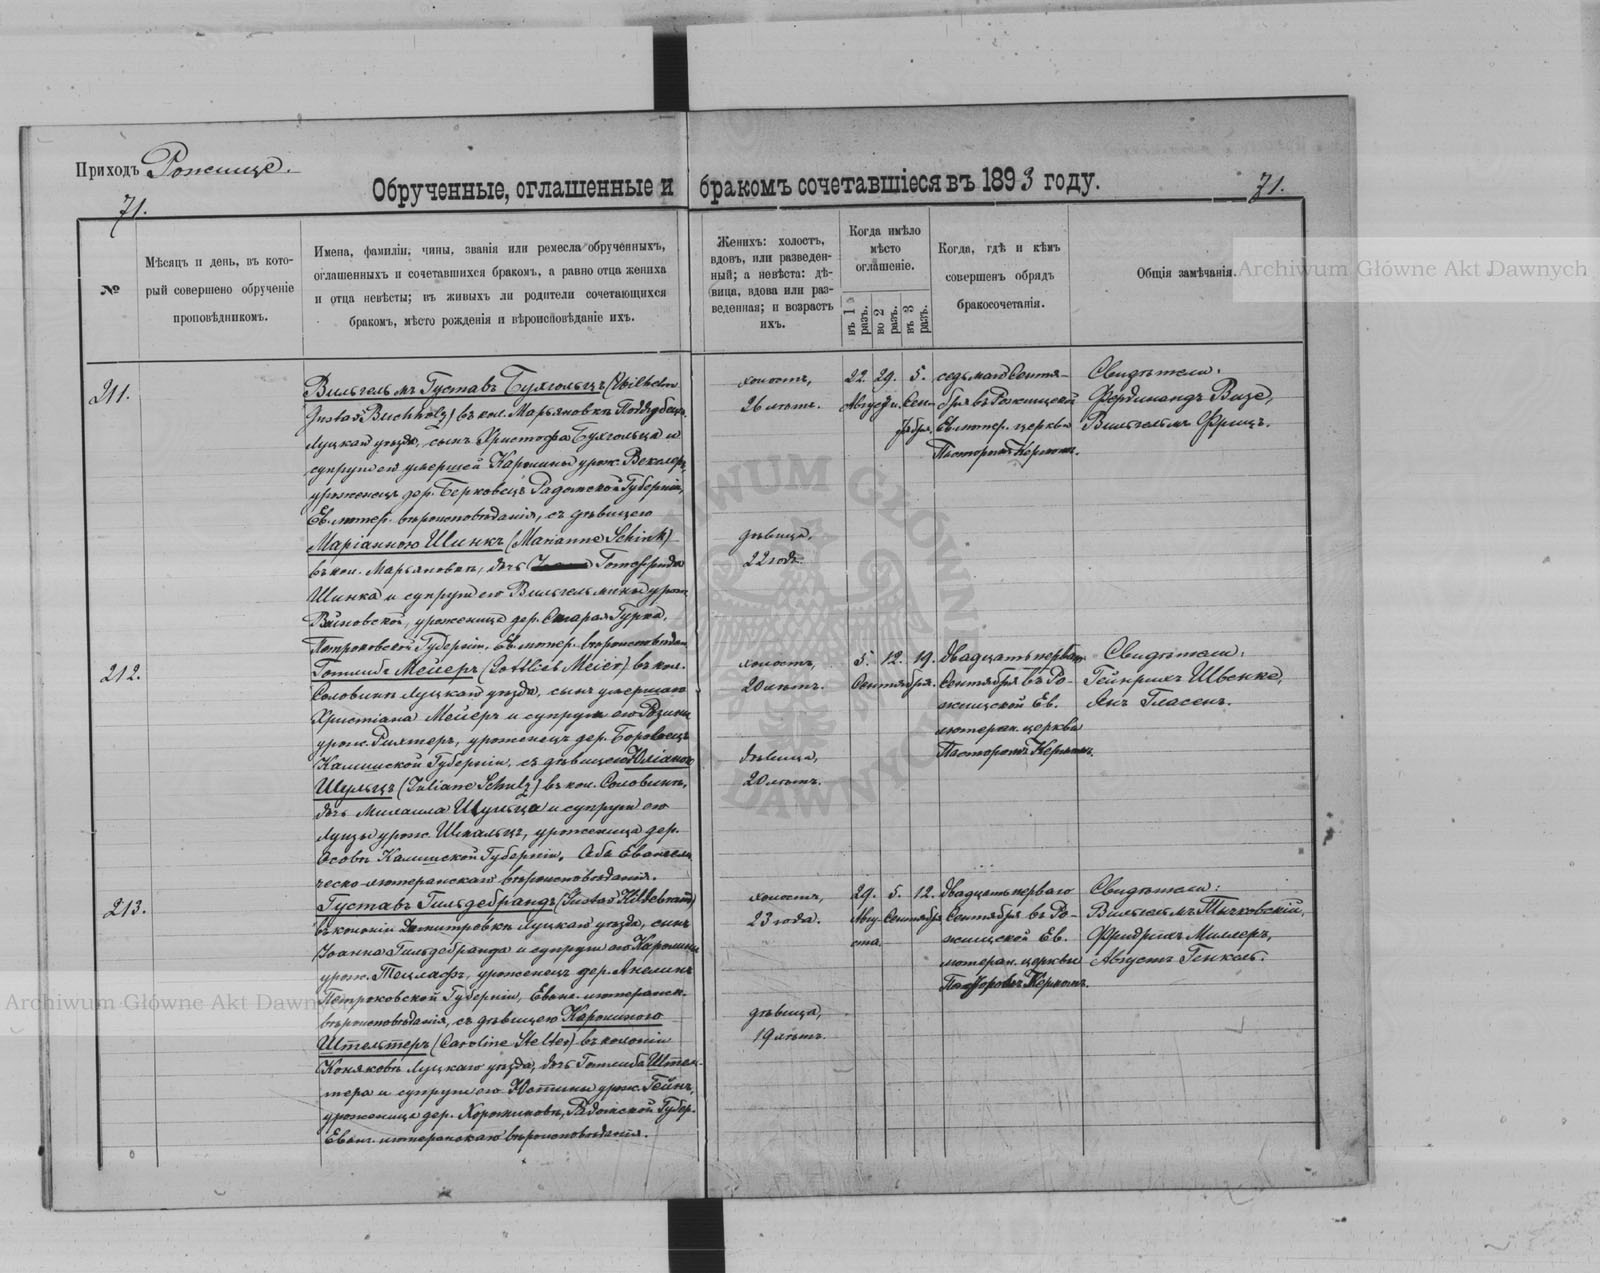 Приходъ Рожище.
Обрученные, оглашенные и бракомъ сочетавшіеся въ 1893 году.
71.
71.
№
Мѣсяцъ и день, въ кото-
рый совершено обрученіе
проповѣдникомъ.
Имена, фамиліи, чины, званія или ремесла обрученныхъ,
оглашенныхъ и сочетавшихся бракомъ, а равно отца жениха
и отца невѣсты; въ живыхъ ли родители сочетающихся
бракомъ, мѣсто рожденія и вѣроисповѣданіе ихъ.
Женихъ: холостъ,
вдовъ, или разведен-
ный; а невѣста: дѣ-
вица, вдова или раз-
веденная; и возрастъ
ихъ.
Когда имѣло
мѣсто
оглашеніе.
въ 1 разъ.
во 2 разъ.
въ 3 разъ.
Когда, гдѣ и кѣмъ
совершенъ обрядъ
бракосочетанія.
Общія замѣчанія.
Archiwum Główne Akt Dawnych
211.
Вильгельмъ Густавъ Бухгольцъ (Wilhelm
Gustav Buchholz) въ кол. Марьяновкѣ
Луцкаго уѣзда, сынъ Христофа Бухгольца и
супруги его умершей Каролины урож.
уроженецъ дер. Берковецъ Радомской Губерніи,
Ев. лютер. вѣроисповѣданія, съ дѣвицею
Маріанною Шинкъ (Marianne Schink)
въ кол. Марьяновкѣ, дочь Готфрида
Шинка и супруги его Вильгельмины урож.
уроженица дер. Старая Гурка,
Петроковской Губерніи, Ев. лютер. вѣроисповѣдан.
холостъ,
26 лѣтъ.
дѣвица,
22 годъ.
22. 29. 5.
Августа. Сен-
тября.
седьмаго Сентя-
бря въ Рожищской
Ев. лютер. церкви
Пасторомъ Керномъ.
Свидѣтели:
Фердинандъ Визе,
Вильгельмъ Фрицъ.
212.
Готлибъ Мейеръ (Gottlieb Meier) въ кол.
Соловинѣ Луцкаго уѣзда, сынъ умершаго
Христіана Мейеръ и супруги его Розины
урож. Рихтеръ, уроженецъ дер. Боровецъ
Калишской Губерніи, съ дѣвицею Юліаною
Шульцъ (Juliane Schulz) въ кол. Соловинѣ,
дочь Михаила Шульца и супруги его
Луизы урож. Шмальцъ, уроженица дер.
Осовъ Калишской Губерніи. Оба Евангели-
ческо-лютеранскаго вѣроисповѣданія.
холостъ,
20 лѣтъ.
дѣвица,
20 лѣтъ.
5. 12. 19.
Сентября.
Двадцать перваго
Сентября въ Ро-
жищской Ев.
лютеран. церкви
Пасторомъ Керномъ.
Свидѣтели:
Гейнрихъ Швенке,
Янъ Гласенъ.
213.
Густавъ Гильдебрандъ (Gustav Hildebrandt)
въ колоніи Дмитровкѣ Луцкаго уѣзда, сынъ
Іоанна Гильдебранда и супруги его Каролины
урож. Тецлафъ, уроженецъ дер. Анелинъ
Петроковской Губерніи, Еванг. лютеранск.
вѣроисповѣданія, съ дѣвицею Каролиною
Штельтеръ (Caroline Stelter) въ колоніи
Коняковъ Луцкаго уѣзда, дочь Готлиба Штель-
тера и супруги его Юстины урож. Гейнъ,
уроженица дер. Радомской Губер.
Еванг. лютеранскаго вѣроисповѣданія.
холостъ,
23 года.
дѣвица,
19 лѣтъ.
29. 5. 12.
Авгу- Сентября
ста
Двадцать перваго
Сентября въ Ро-
жищской Ев.
лютеран. церкви
Пасторомъ Керномъ.
Свидѣтели:
Вильгельмъ Тычковскій,
Фридрихъ Миллеръ,
Августъ Генкель.
Archiwum Główne Akt Dawnych